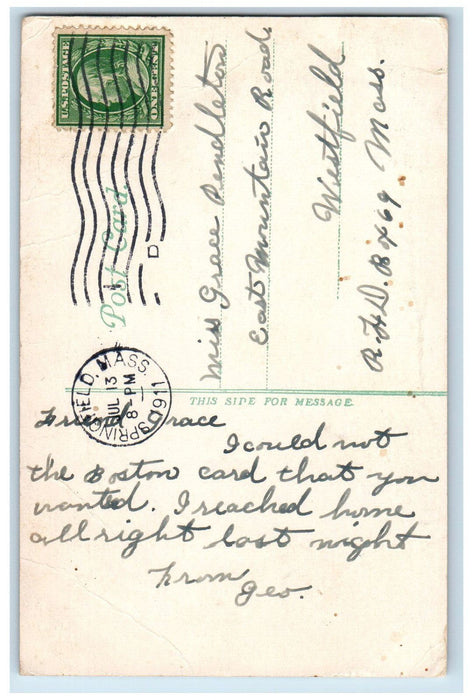 U.S. POSTAGE
ONE CENT
Post Card.
SPRINGFIELD, MASS.
JUL 13
8-PM
1911
D
Miss Grace Pendleton
East Mountain Road
Westfield
Mass.
R.F.D. Box 69
THIS SIDE FOR MESSAGE.
Friend Grace
I could not
the Boston card that you
wanted. I reached home
all right last night
From
Geo.